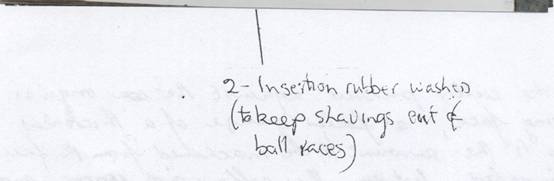 2 - Insertion rubber washers
(to keep shavings out of
ball races)